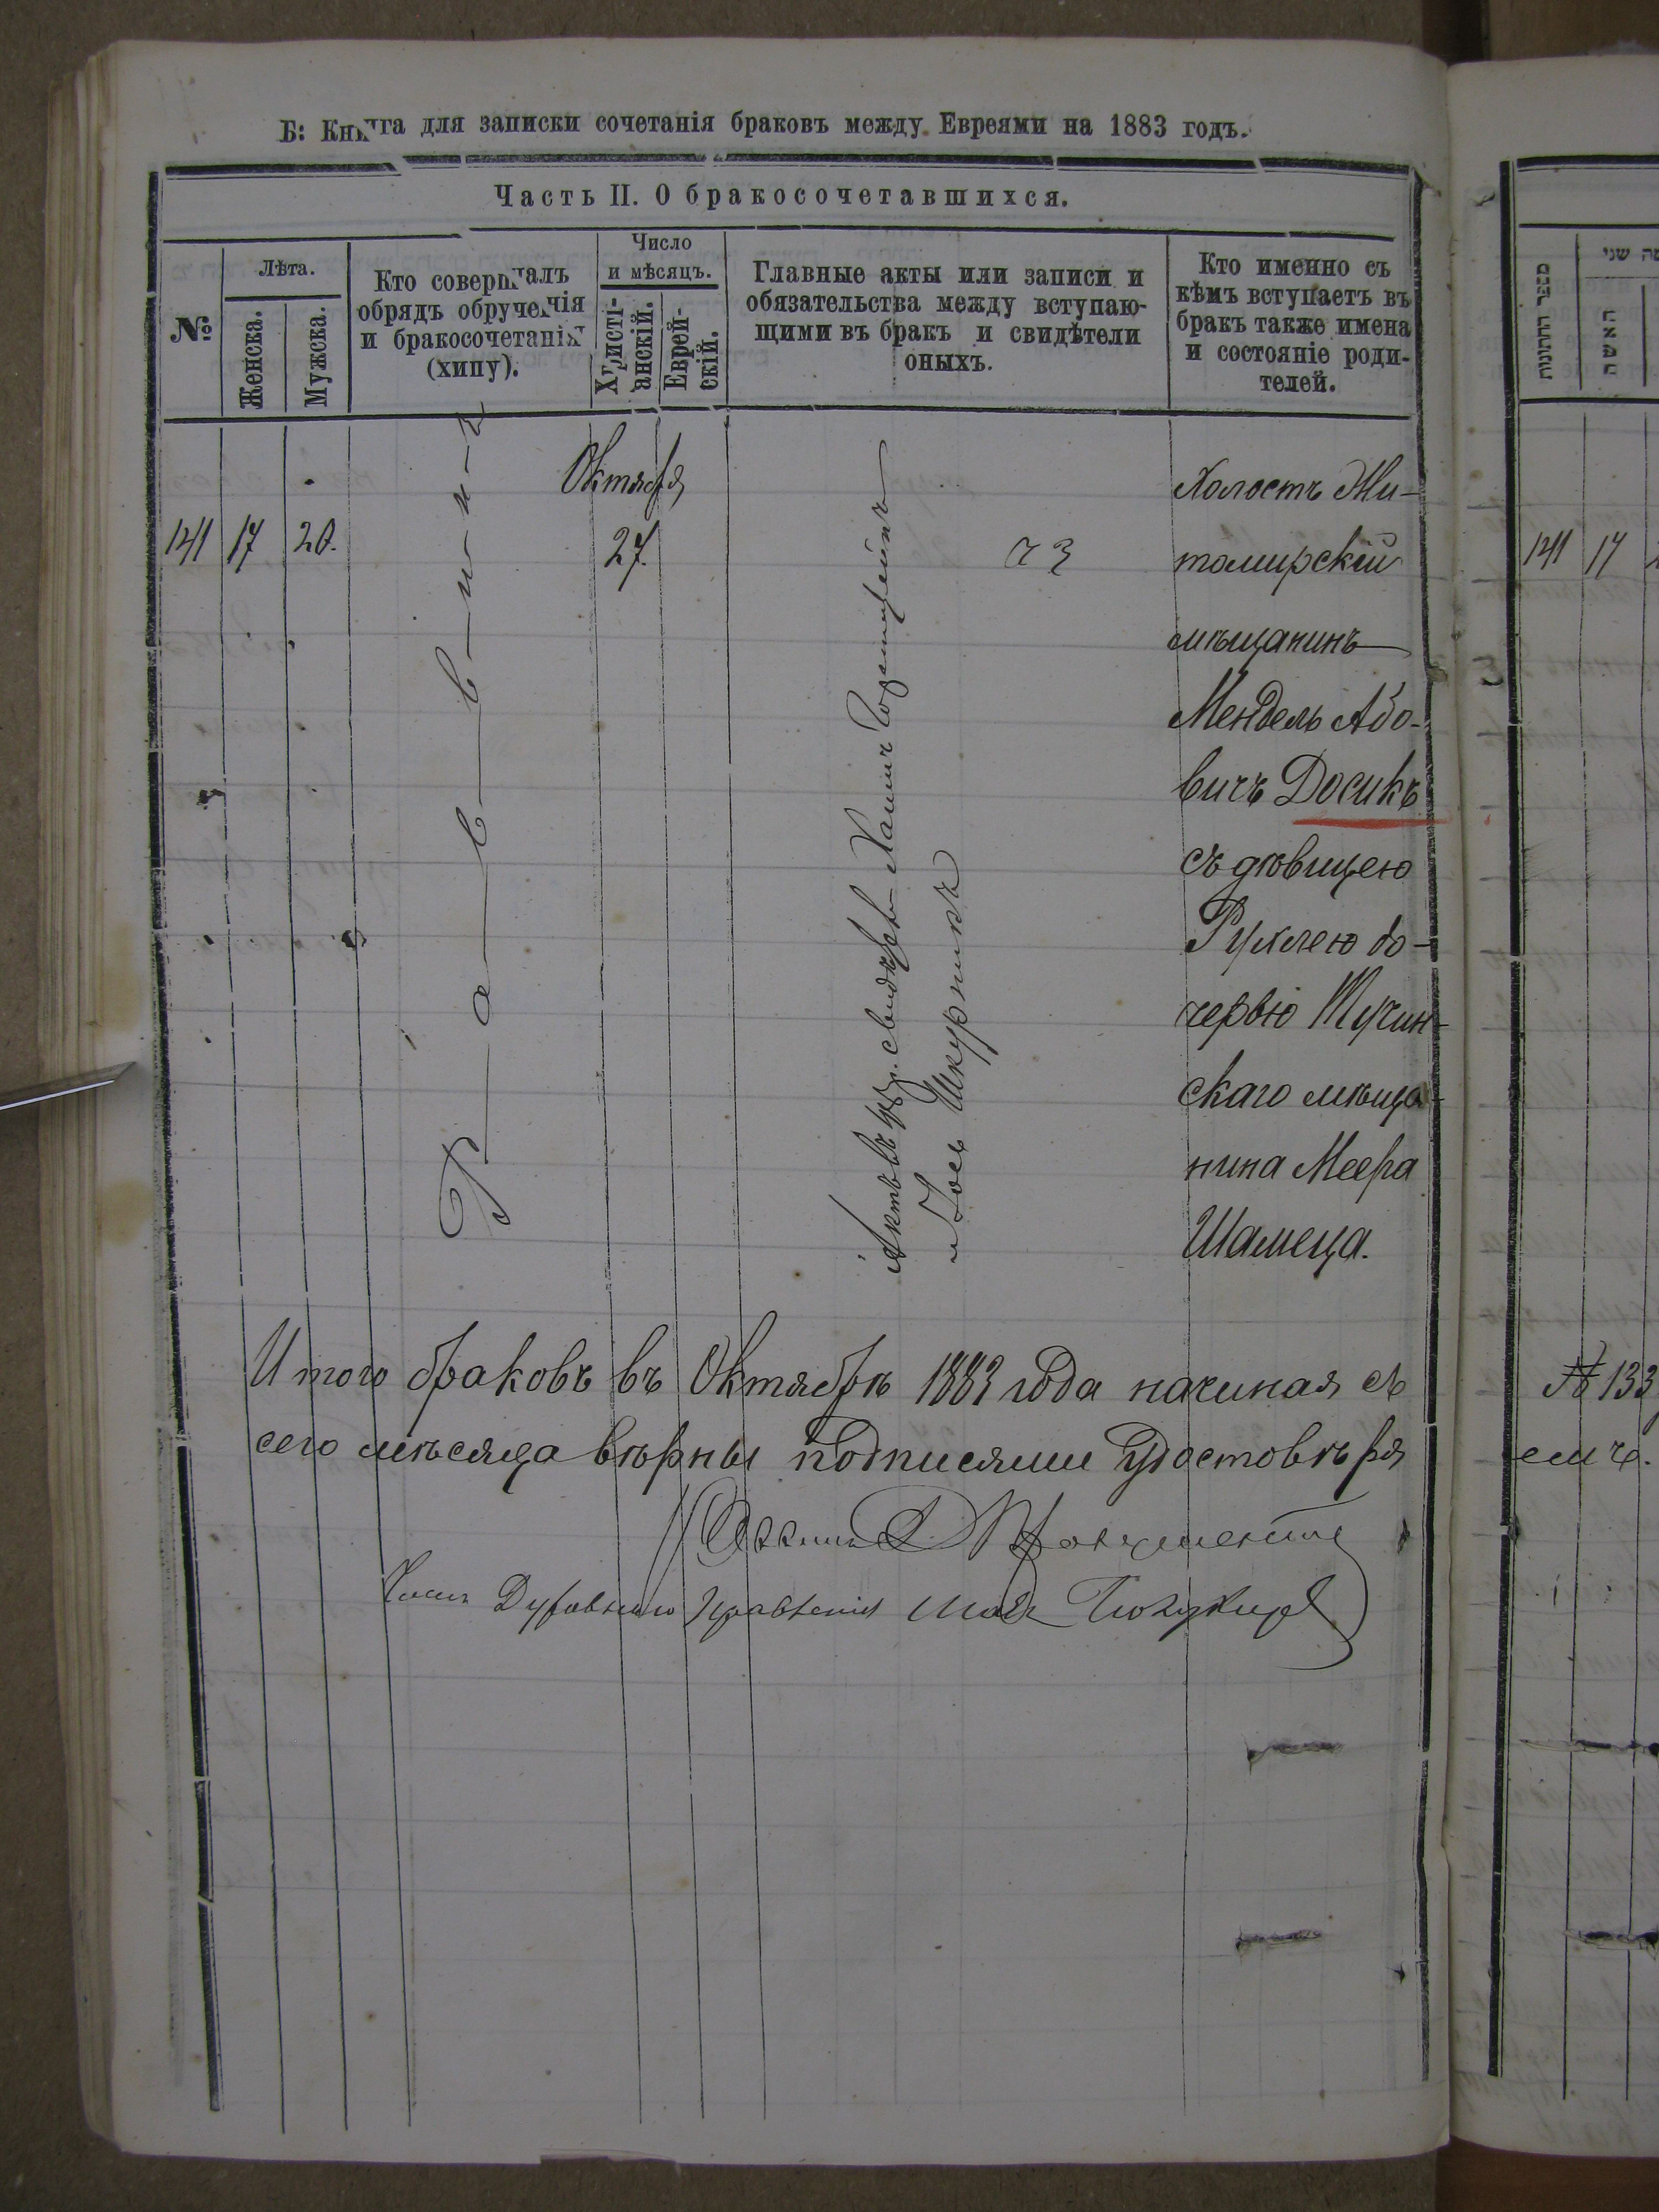 Б: Книга для записки сочетанія браковъ между Евреями на 1883 годъ.
Часть II. О бракосочетавшихся.
№
Лѣта.
Женска.
Мужска.
Кто совершалъ
обрядъ обрученія
и бракосочетанія
(хипу).
Число
и мѣсяцъ.
Христі-
анскій.
Еврей-
скій.
Главные акты или записи и
обязательства между вступаю-
щими въ бракъ и свидѣтели
оныхъ.
Кто именно съ
кѣмъ вступаетъ въ
бракъ также имена
и состояніе роди-
телей.
141
17
20.
Раввинъ
Октября
27.
Актъ въ свидѣт. Хаимъ
и Іось Шкурникъ
Холостъ Жи-
томирскій
мѣщанинъ
Мендель Або-
вичъ Досикъ
съ дѣвицею
Рухлею до-
черью Тучин-
скаго мѣща-
нина Меера
Шамеца.
Итого браковъ въ Октябрѣ 1883 года начиная съ
сего мѣсяца вѣрны подписями удостовѣря
Духовнаго Правленія
מספר החתונות
שני
האשה
141
17
№ 133
емъ.